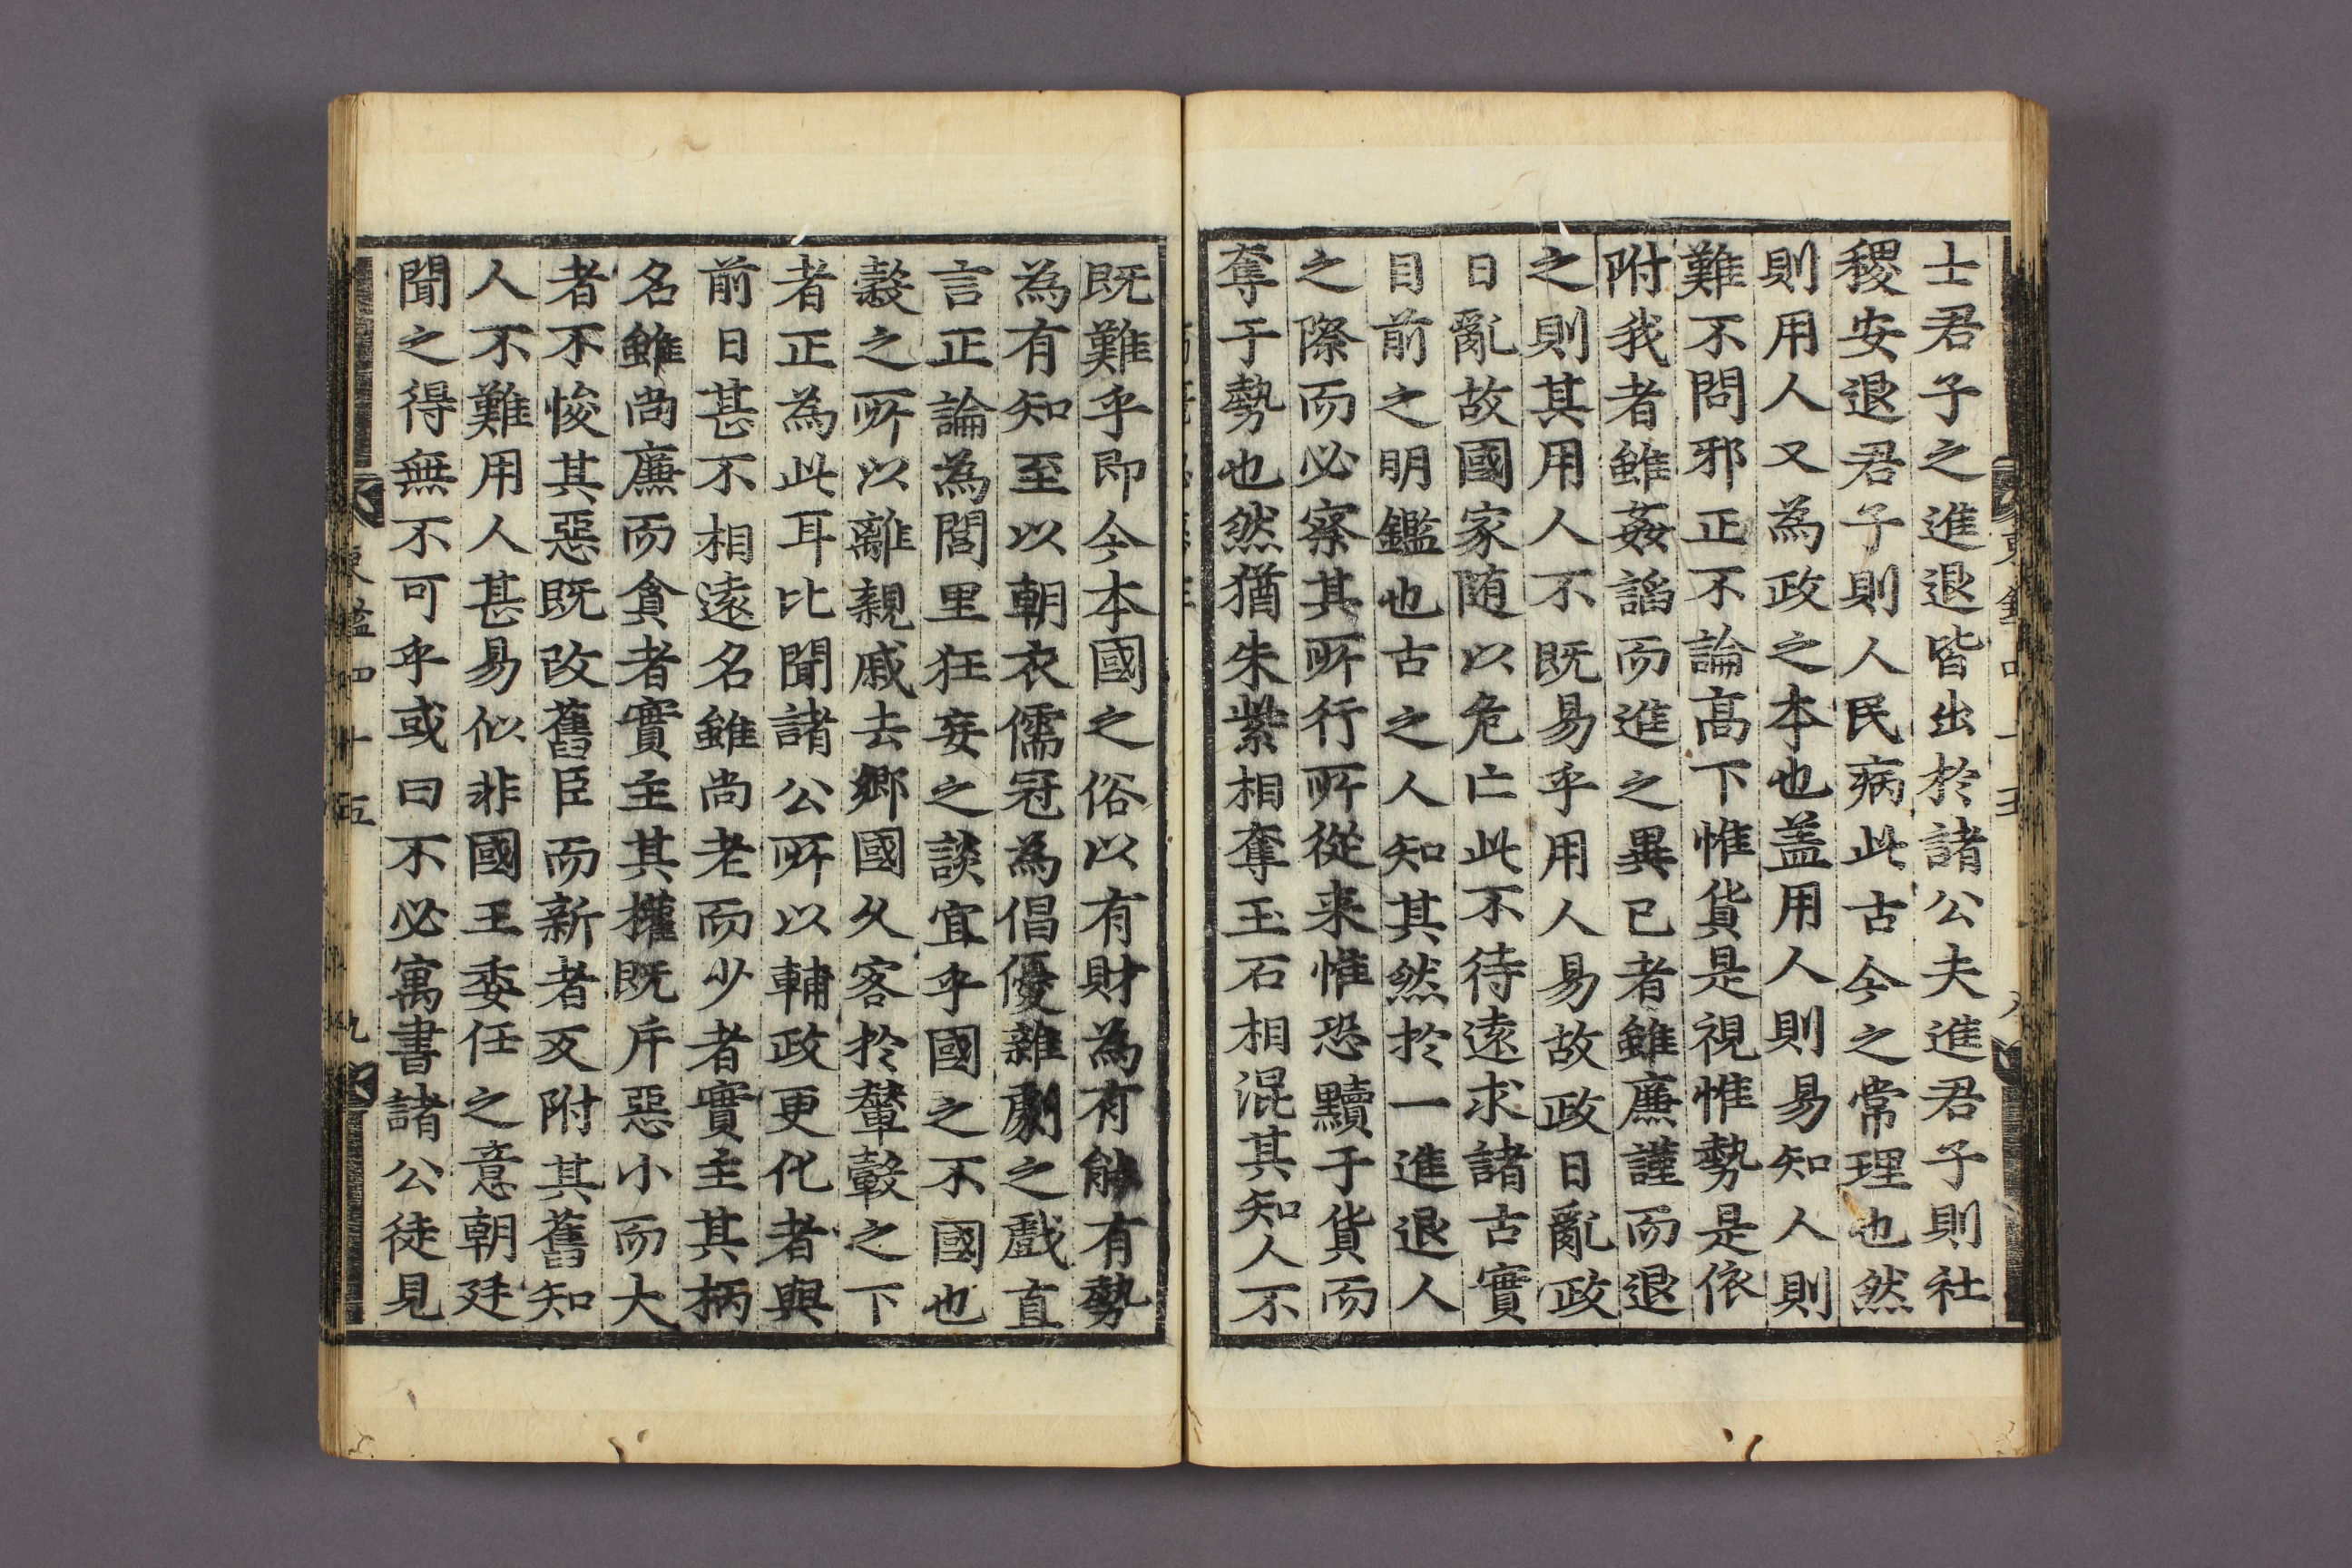 士君子之進退皆出於諸公夫進君子則社
稷安退君子則人民病此古今之常理也然
則用人又為政之本也盖用人則易知人則
難不問邪正不論高下惟貨是視惟勢是依
附我者雖姦謟而進之異已者雖廉謹而退
之則其用人不既易乎用人易故政日亂政
日亂故國家随以危亡此不待遠求諸古實
目前之明鑑也古之人知其然於一進退人
之際而必察其所行所從来惟恐黷于貨而
奪于勢也然猶朱紫相奪玉石相混其知人不
既難乎即今本國之俗以有財為有能有勢
為有知至以朝衣儒冠為倡優雜劇之戲直
言正論為閭里狂妄之談宜乎國之不國也
穀之所以離親戚去鄉國久客於輦轂之下
者正為此耳比聞諸公所以輔政更化者與
前日甚不相遠名雖尚老而少者實主其柄
名雖尚廉而貪者實主其權既斥惡小而大
者不悛其惡既改舊臣而新者反附其舊知
人不難用人甚易似非國王委任之意朝廷
聞之得無不可乎或曰不必寓書諸公徒見
東鑑四十五
九